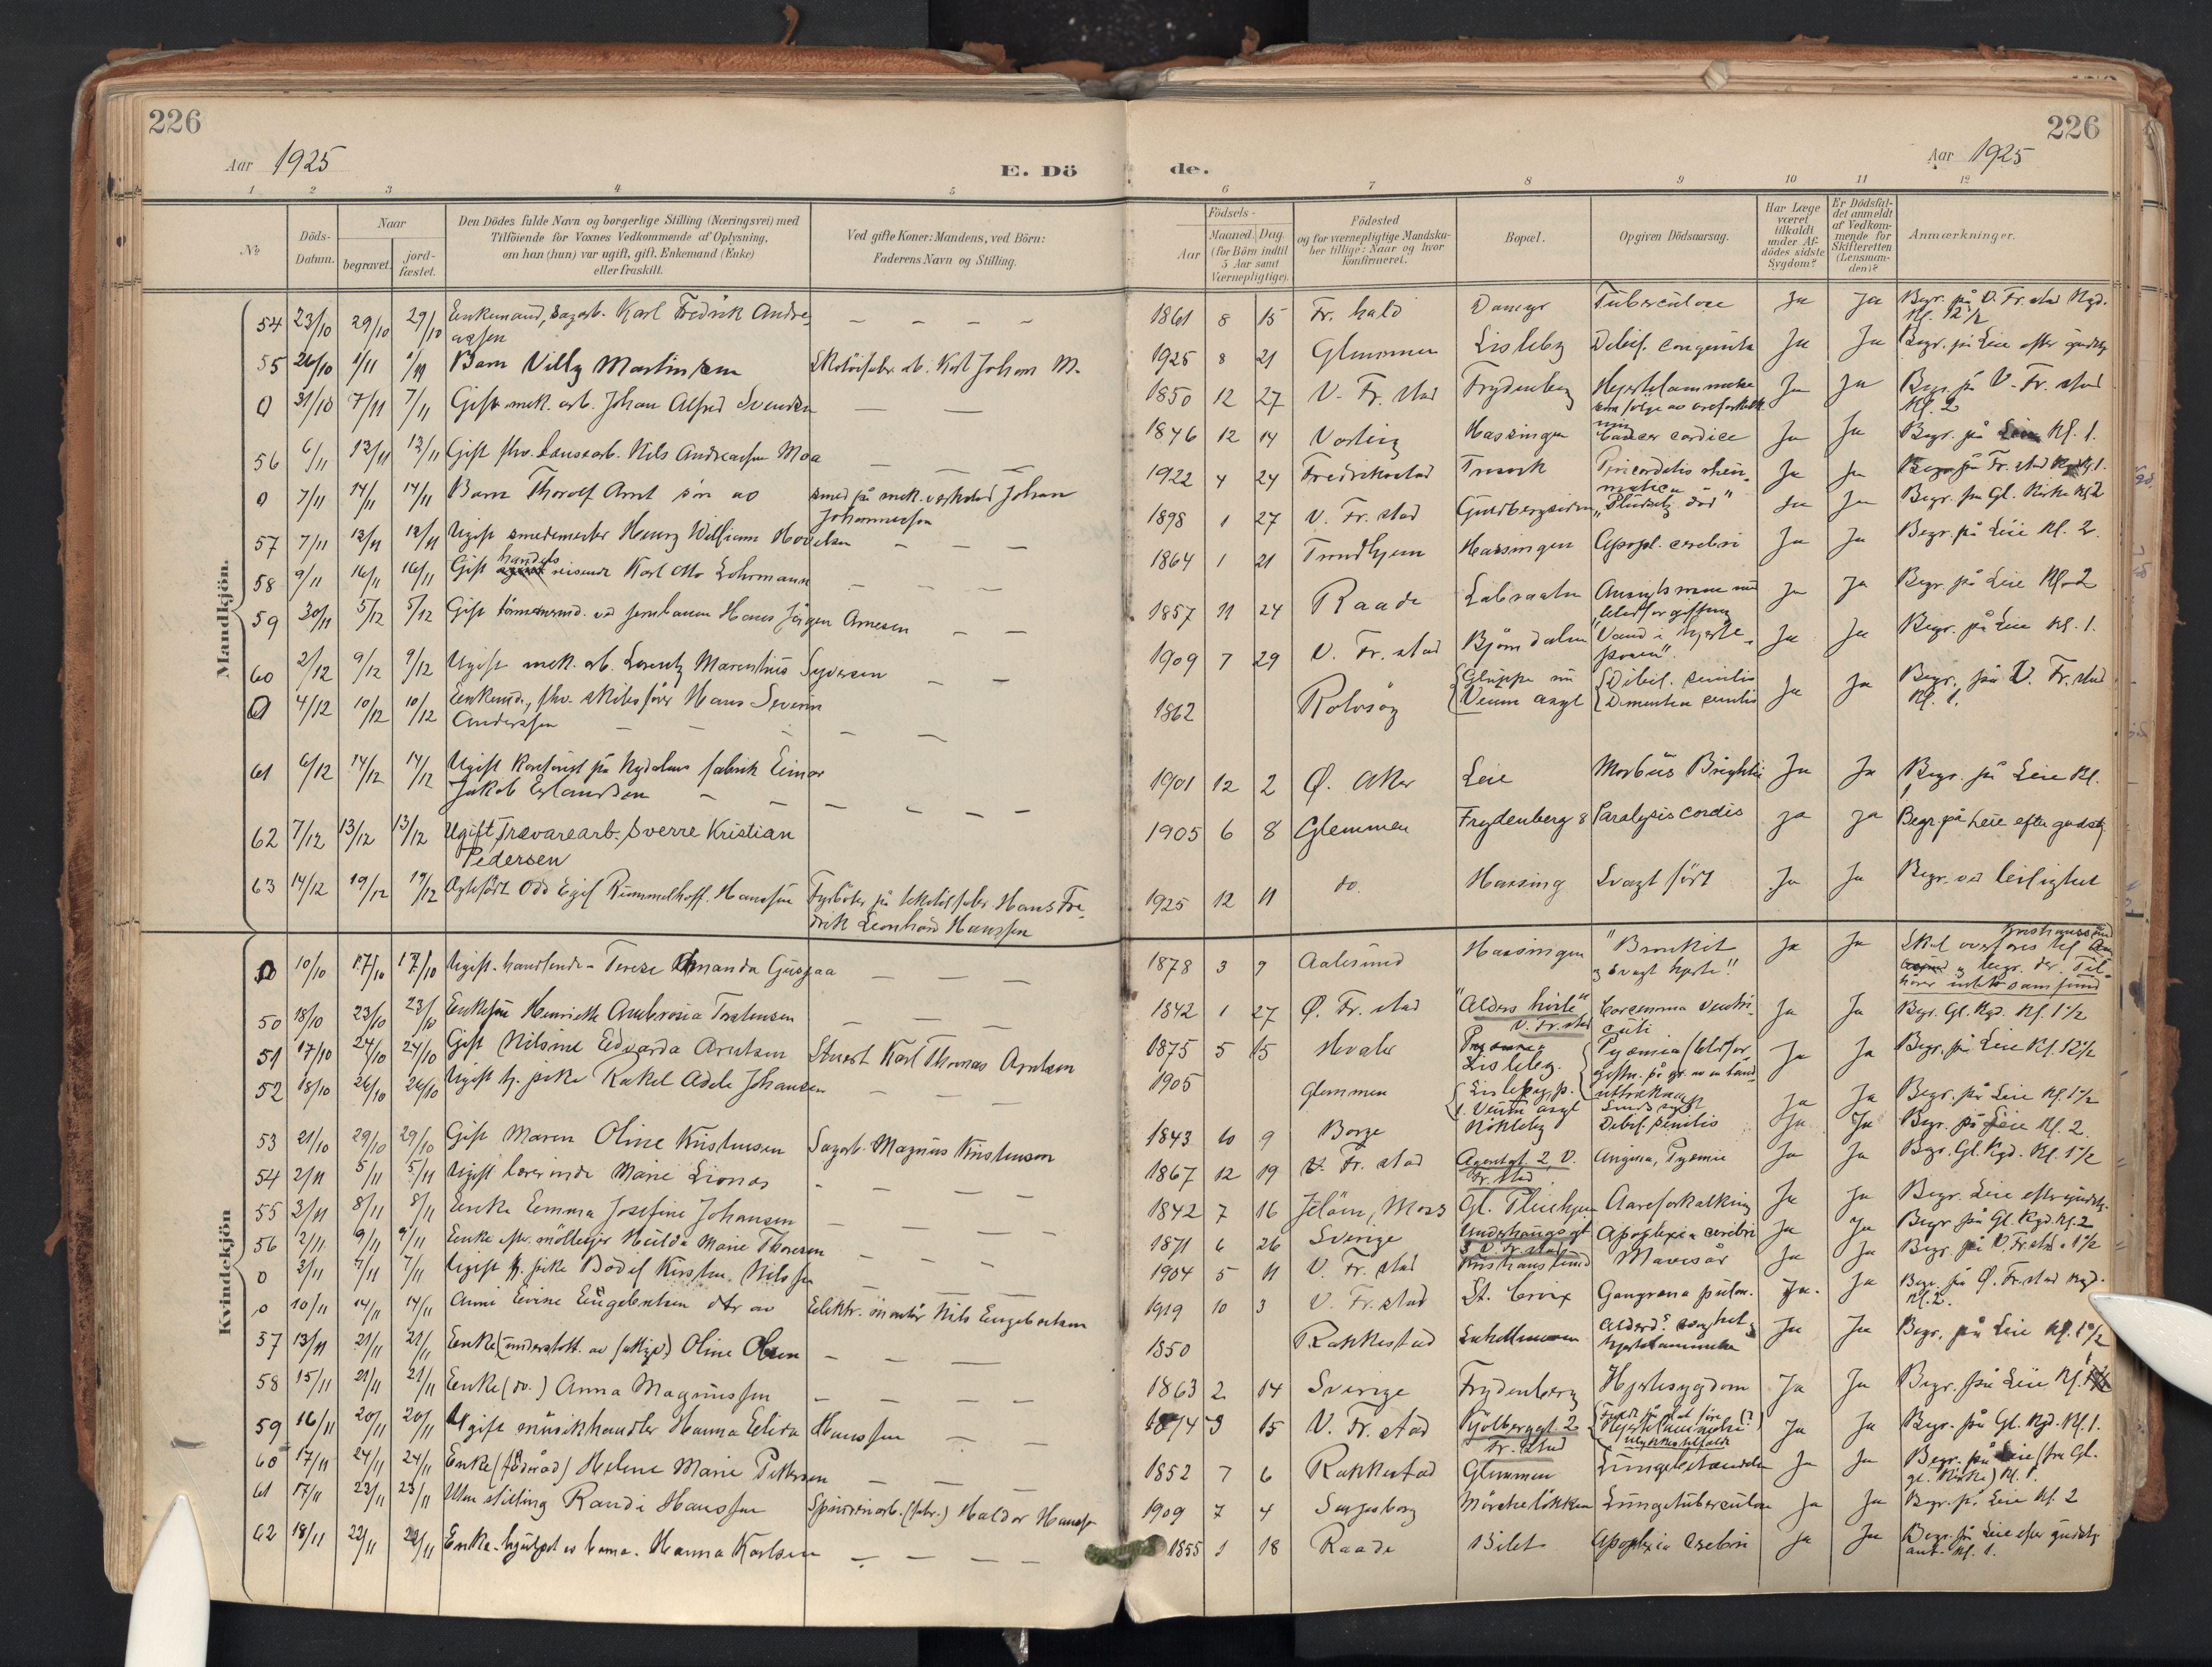 226
Aar 1925
E. Dö
1 2 3 4 5
No
Döds-
Datum.
Naar
begravet.
jord-
fæstet.
Den Dödes fulde Navn og borgerlige Stilling (Næringsvei) med
Tilföiende for Voxnes Vedkommende af Oplysning,
om han (hun) var ugift, gift, Enkemand (Enke)
eller fraskilt.
Ved gifte Koner: Mandens, ved Börn:
Faderens Navn og Stilling.
Mandkjön.
54 23/10 29/10 29/10 Enkemand, sagarb. Karl Fredrik Andre-
assen
55 26/10 1/11 1/11 Barn Villy Martinsen Skotöifabr. arb. Karl Johan M.
0 31/10 7/11 7/11 Gift mek. arb. Johan Alfred Svendsen
56 6/11 13/11 13/11 Gift fhv. Nils Andreassen Moa
0 7/11 14/11 14/11 Barn Thorolf Arnt sön av smed på mek. verksted Johan
Johannessen
57 7/11 12/11 12/11 Ugift smedemester Henry William
58 9/11 16/11 16/11 Gift handels reisende Karl Otto Lohrmann
59 30/11 5/12 5/12 Gift tömmermd. ved jernbanen Hans Jörgen Arnesen
60 2/12 9/12 9/12 Ugift mek. arb. Lorentz Marentius Syversen
0 4/12 10/12 10/12 Enkemd., fhv. skibsförer Hans Severin
Anderssen
61 6/12 14/12 14/12 Ugift kontorist på Nydalens fabrik Einar
Jakob Erlandsen
62 7/12 13/12 13/12 Ugift Trævarearb. Sverre Kristian
Pedersen
63 14/12 19/12 19/12 Odd Egil Rummelhoff Hanssen Fyrböter på skotöifabr. Hans Fre-
drik Leonhard Hanssen
Kvindekjön
0 10/10 17/10 17/10 Ugift. handlende - Tereze Amanda
50 18/10 23/10 23/10 Enkefru Henriette Ambrosia Torstensen
51 17/10 24/10 24/10 Gift Nilsine Edvarda Arntsen Stuert Karl Thomas Arntsen
52 18/10 26/10 26/10 Ugift tj. pike Rakel Adele Johansen
53 21/10 29/10 29/10 Gift Maren Oline Kristensen Sagarb. Magnus Kristensen
54 2/11 5/11 5/11 Ugift lærerinde Marie Lionæs
55 3/11 8/11 8/11 Enke Emma Josefine Johansen
56 2/11 9/11 9/11 Enke efter möllegut Hulda Marie Thoresen
0 3/11 7/11 7/11 Ugift tj. pike Bodel Kirstine Nilssen
0 10/11 14/11 14/11 Anni Evine Engebretsen dtr av Elektr. montör Nils Engebretsen
57 13/11 21/11 21/11 Enke (understött. av fattigv.) Oline Olsen
58 15/11 21/11 21/11 Enke (do.) Anna Magnussen
59 16/11 20/11 20/11 Ugift musikhandler Hanna Elida Hanssen
60 17/11 24/11 24/11 Enke (föderåd) Helene Marie Pettersen
61 17/11 23/11 23/11 Uten stilling Randi Hanssen Spinneriarb. (fabr.) Haldor Hanss.
62 18/11 22/11 22/11 Enke. hjulpet av barna. Hanna Karlsen
226
Aar 1925
de.
6 7 8 9 10 11 12
Födsels-
Aar
Maaned. Dag
(for Börn indtil
5 Aar samt
Værnepligtige).
Födested
og for værnepligtige Mandska-
ber tillige: Naar og hvor
konfirmeret.
Bopæl.
Opgiven Dödsaarsag.
Har Læge
været
tilkaldt
under Af-
dödes sidste
Sygdom?
Er Dödsfal-
det anmeldt
af Vedkom-
mende for
Skifteretten
(Lensman-
den)?
Anmærkninger.
1861 8 15 Fr. hald Damyr Tuberculose Ja Ja Begr. på V. Fr. stad Kgd.
Kl. 12 1/2
1925 8 21 Glemmen Lisleby Debil. congenita Ja Ja Begr. på Leie efter gudstj.
1850 12 27 V. Fr. stad Frydenberg Hjertelammelse
som følge av areforkalk-
ning Ja Ja Begr. på V. Fr. stad
Kl. 2
1846 12 14 Hassingen Cancer Ja Ja Begr. på Leie Kl. 1.
1922 4 24 Fredrikstad Trosvik Pericarditis rheu-
matica Ja Ja Begr. på Fr. stad
1898 1 27 V. Fr. stad Guldbergsiden "Pludselig död" Ja Ja Begr. fra Gl. Kirke Kl 2
1864 1 21 Trondhjem Hassingen Apopl. cerebri Ja Ja Begr. på Leie Kl. 2.
1857 11 24 Raade Labraaten Ansigtsrosen med
blodforgiftning Ja Ja Begr på Leie Kl. 2
1909 7 29 V. Fr. stad Björndalen "Vand i hjerte-
posen". Ja Ja Begr. på Leie Kl. 1.
1862 Rolvsöy Gluppe nu
Veum asyl Debil. senilis
Dementia senilis Ja Ja Begr. på V. Fr. stad
Kl. 1.
1901 12 2 Ø. Aker Leie Morbus Brightii Ja Ja Begr. på Leie Kl.
1905 6 8 Glemmen Frydenberg 8 Paralysis cordis ja ja Begr. på Leie efter gudstj.
1925 12 11 do. Hassing Svagt födt Ja Ja Begr. ved leilighet
1878 3 9 Aalesund Hassingen "Bronkit
og svagt hjerte" Ja Ja Skal overföres til Kristianssund
og begr. der. Til-
hörer intet samfund
1842 1 27 Ø. Fr. stad "Alders hvile"
V. Fr. stad Carcinoma ventri-
culi Ja Ja Begr. Gl. Kgd. Kl. 1 1/2
1875 5 15 Hvaler Lisleby. Pyæmia (blodfor-
giftn. på gr. av en tand-
uttrækning Ja Ja Begr. på Leie Kl. 12 1/2
1905 Glemmen Lisleby, p.
t. Veum asyl Sindssygd. Ja Ja Begr. på Leie Kl 1 1/2
1843 10 9 Borge Nökleby Debil. senilis Ja Ja Begr. på Leie Kl. 2.
1867 12 19 V. Fr. stad Agentgt. 2, V.
Fr. stad Angina, Pyæmie Ja Ja Begr. Gl. Kgd. Kl. 1 1/2
1842 7 16 Jelöen, Moss Gl. Pleiehjem Aareforkalkning Ja Ja Begr. Leie efter gudstj.
1871 6 26 Sverige
3 V. Fr. stad Apoplexia cerebri Ja Ja Begr på Gl. Kgd. Kl. 2
1904 5 11 V. Fr. stad Kristianslund Mavesår Ja Ja Begr. på V. Fr. stad 1 1/2
1919 10 3 V. Fr. stad St. Croix Gangræna pulm. Ja Ja Begr. på Ø. Fr. stad Kgd.
Kl. 2.
1850 Rakkestad
hjertelammelse Ja Ja Begr. på Leie Kl. 1 1/2
1863 2 14 Sverige Frydenberg Hjertesygdom Ja Ja Begr. på Leie Kl. 1
1874 3 15 V. Fr. stad Kjölberggt. 2
Fr. stad
ulykkestilfælde Ja Ja Begr. på Gl. Kgd. Kl. 1.
1852 7 6 Rakkestad Glemmen Lungebetændelse Ja Ja Begr. på Leie (fra Gl.
gl. Kirke) Kl. 1.
1909 7 4 Sarpsborg Mörkelökken Lungetuberculose Ja Ja Begr. på Leie Kl. 2
1855 1 18 Raade Bilet Apoplexia cerebri Ja Ja Begr. på Leie efter gudstj.
ant. Kl. 1.